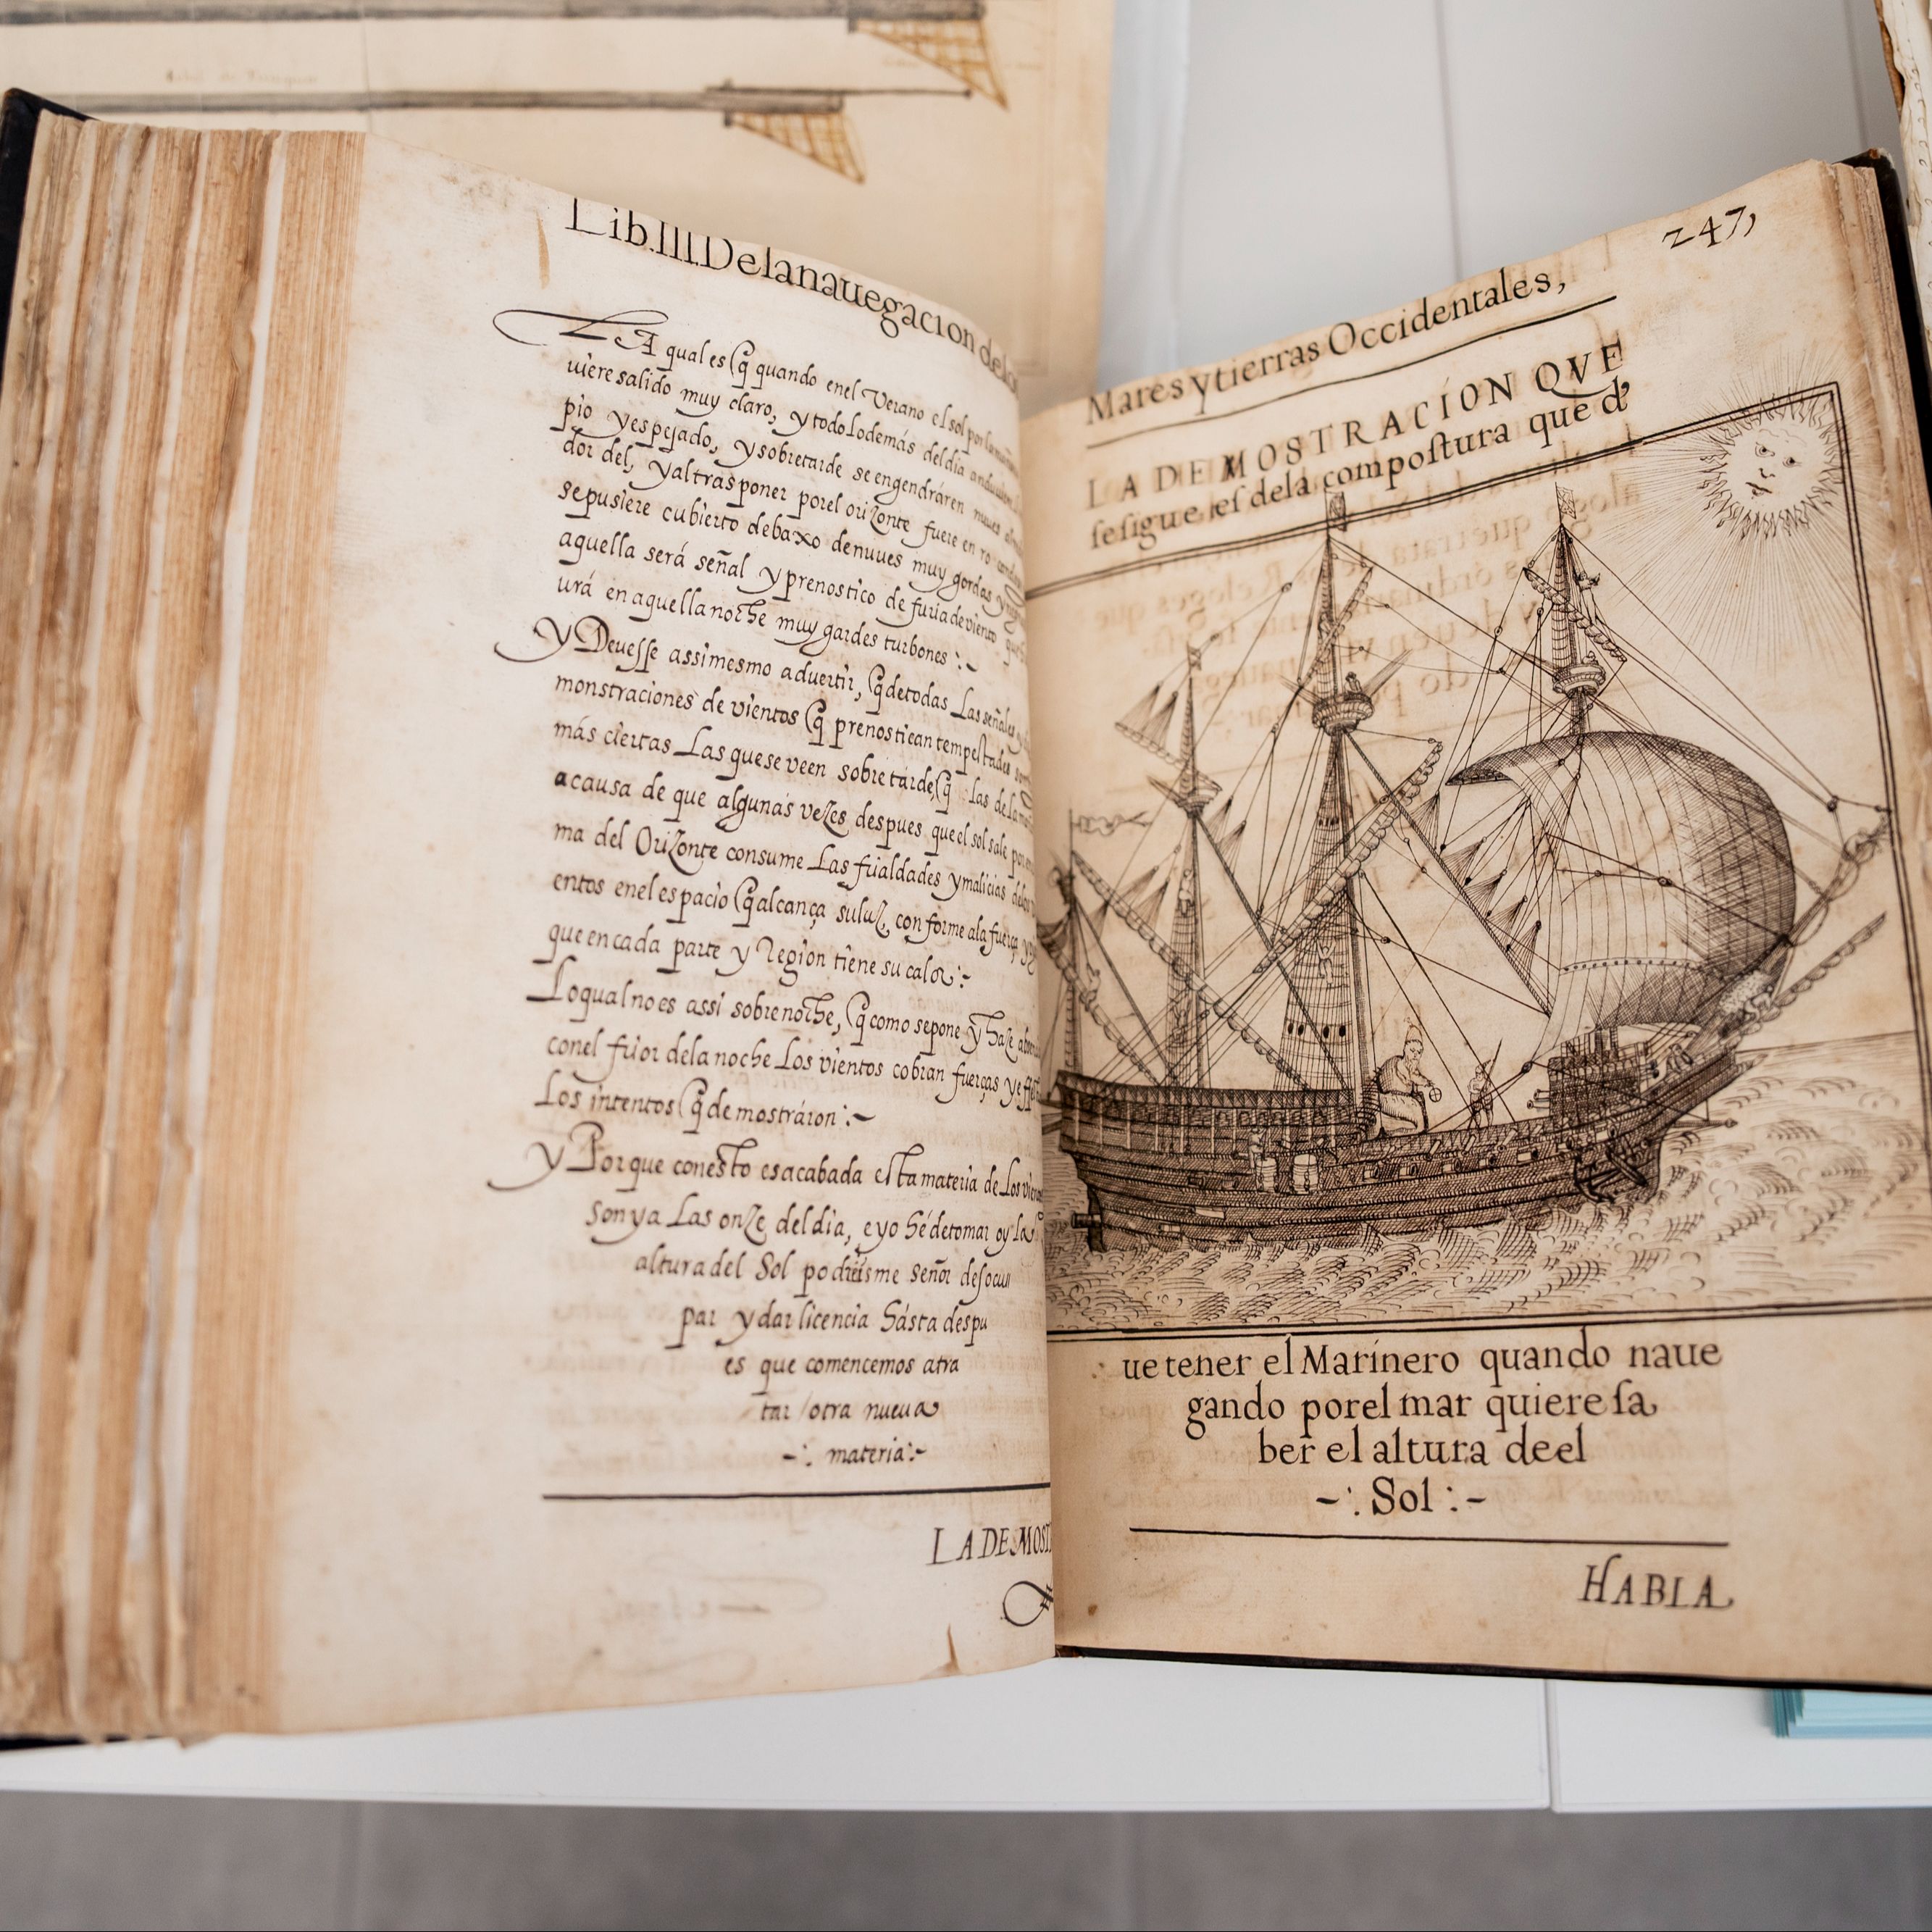 Lib.III.Delanauegacion delos
LA qual es q̃ quando enel Verano el sol por la
uiere salido muy claro, y todo lo demás del dia
pio y espejado, y sobretarde se engendráren nuues
dor del, y al trasponer por el orizonte fuere en
se pusiere cubierto debaxo de nuues muy gordas
aquella será señal y prenostico de furia de viento que
urá en aquella noche muy gardes turbones :~
y Deuesse assimesmo aduertir, q̃ de todas Las señales
monstraciones de vientos q̃ prenostican tempestades
más ciertas Las que se veen sobre tarde, q̃ las de la
a causa de que algunas vezes despues que el sol sale por
ma del Orizonte consume Las frialdades y malicias delos
entos enel espacio q̃ alcança su luz, con forme a la fuerça
que en cada parte y Region tiene su calor :~
Lo qual no es assi sobre noche, q̃ como se pone y haze
con el frior de la noche Los vientos cobran fuerças y
Los intentos q̃ demostráron :~
y Porque con esto es acabada esta materia de Los
son ya Las onze del dia, e yo hé de tomar oy la
altura del Sol podreisme señor desocu
par y dar licencia hásta despu
es que comencemos atra
tar / otra nueua
-: materia:-
LA DEMOST
247,
Mares y tierras Occidentales,
LA DEMOSTRACION QVE
se sigue es dela compostura que d'
ue tener el Marinero quando naue
gando por el mar quiere sa
ber el altura de el
-: Sol :-
HABLA